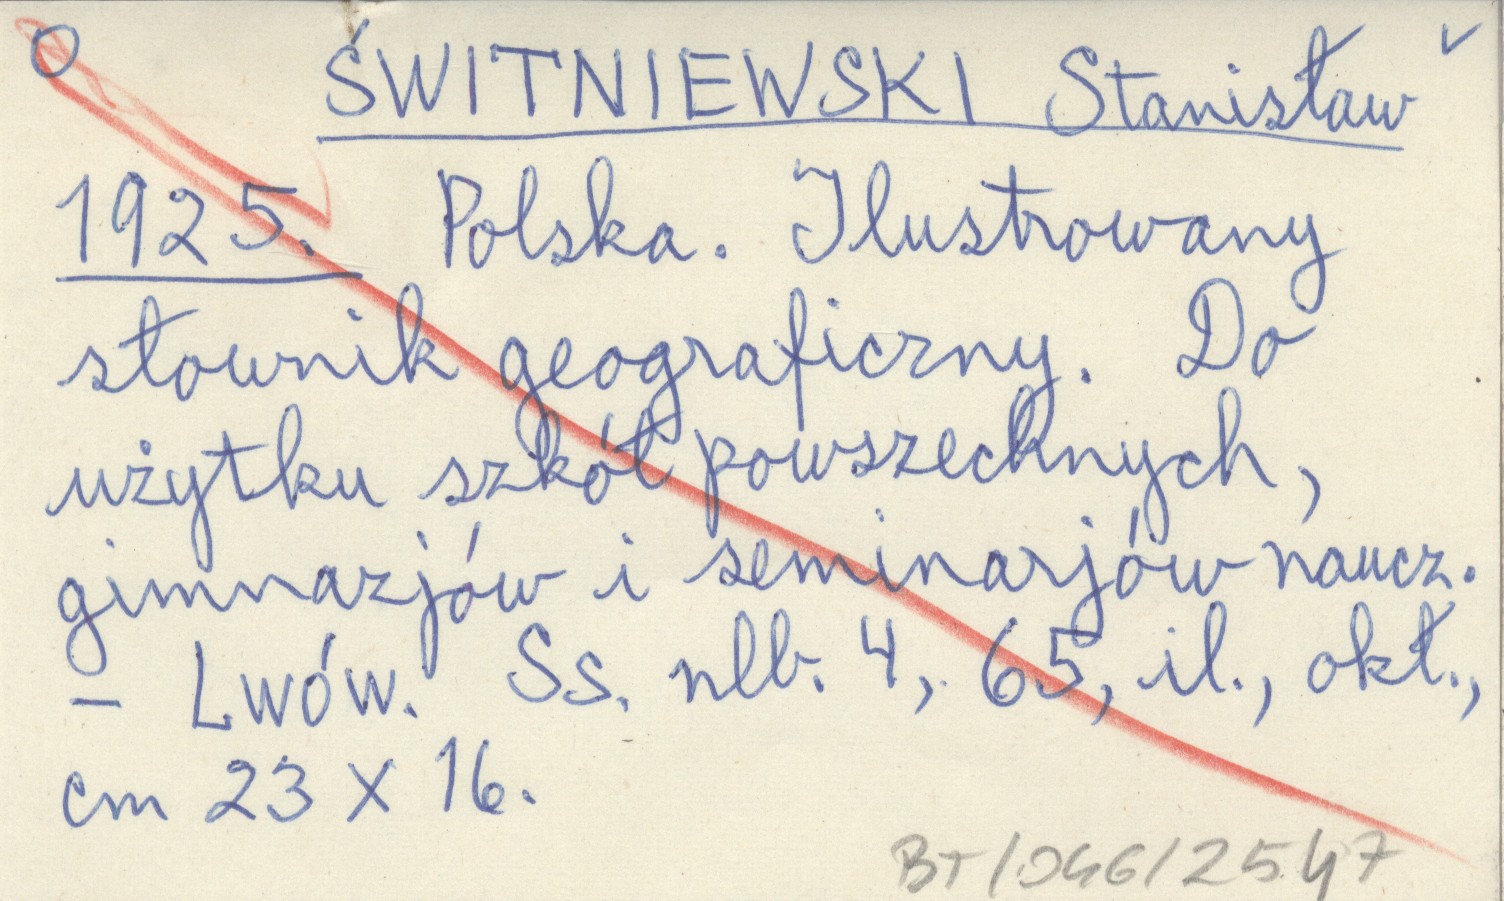 ŚWITNIEWSKI Stanisław
1925. Polska. Ilustrowany
słownik geograficzny. Do
użytku szkół powszechnych,
gimnazjów i seminarjów naucz.
– Lwów. Ss. nlb. 4, 65, il., okł.,
cm 23 x 16.
BT/046/2547